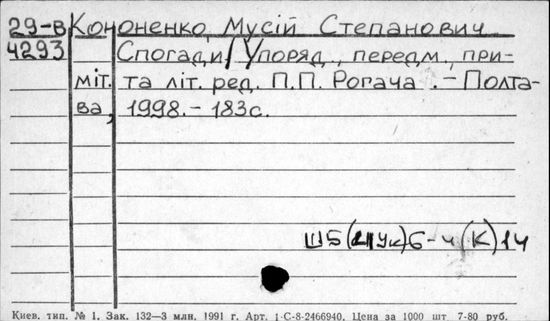 29-В Кононенко, Мусій Степанович
4293 Спогади / Упоряд., передм., при-
міт. та літ. ред. П.П. Рогача. – Полта-
ва, 1998. – 183с.
Ш5(4Ук)6-4(К)14
Киев. тип. № 1. Зак. 132—3 млн. 1991 г. Арт. 1-С-8-2466940. Цена за 1000 шт 7-80 руб.